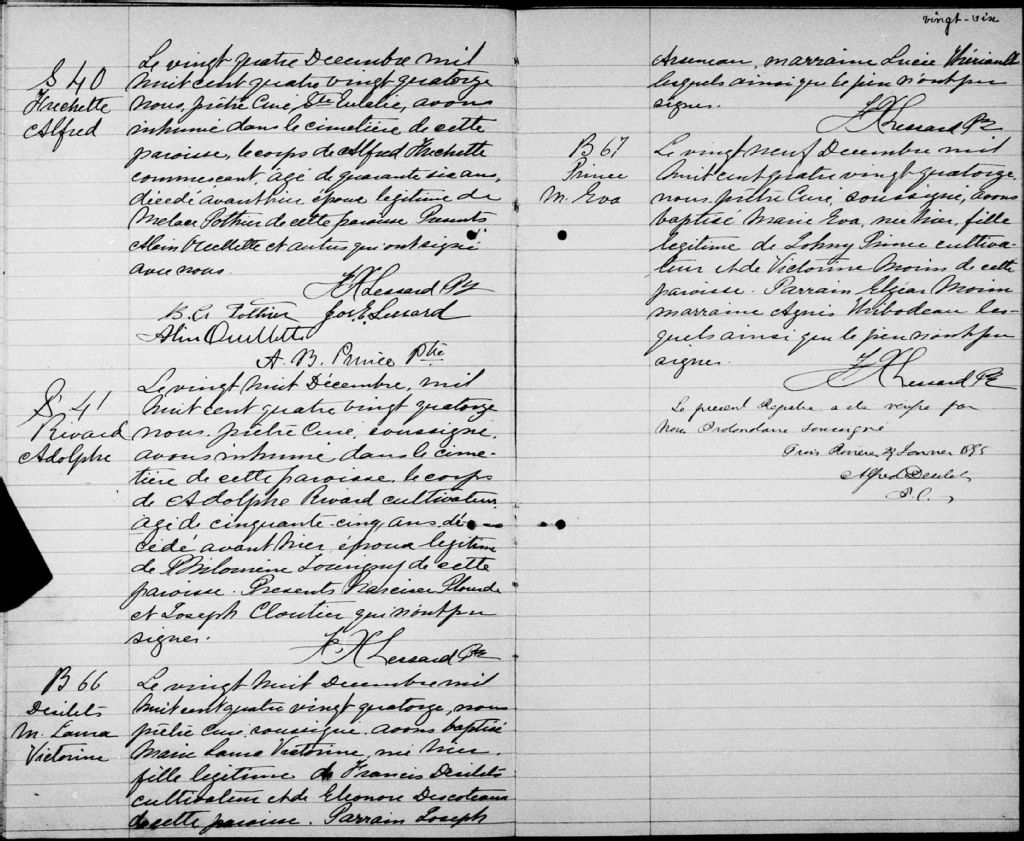 vingt-six
S 40
Frechette
Alfred
Le vingt quatre Decembre mil
huit cent quatre vingt quatorze
nous, prêtre Curé, Ste Eulalie, avons
inhumé dans le cimetière de cette
paroisse, le corps de Alfred Frechette
commercant, agé de quarante six ans,
décédé avant hier époux legitime de
Pothier de cette paroisse Presents
Alain Ouellette et autres qui ont signé
avec nous.
F X Lessard Ptr
B. C. Pothier Jos. E. Lessard
Alin Ouellette
A. B. Prince Ptre
S 41
Rivard
Adolphe
Le vingt huit Décembre, mil
huit cent quatre vingt quatorze
nous, prêtre Curé, soussigné,
avons inhumé dans le cime-
tière de cette paroisse, le corps
de Adolphe Rivard cultivateur
agé de cinquante-cinq ans, dé-
cédé avant hier époux legitime
de Philomène Louvigny de cette
paroisse. Presents Narcisse Plourde
et Joseph Cloutier qui n'ont pu
signer.
F X Lessard Ptr
B 66
Desilets
M. Laura
Victorine
Le vingt huit Decembre mil
huit cent quatre vingt quatorze, nous
prêtre curé, soussigné, avons baptisé
Marie Laura Victorine, née hier,
fille legitime de Francis Desilets
cultivateur et de Eleonore Descoteaux
de cette paroisse. Parrain Joseph
Arseneau, marraine Lucie Thériault
lesquels ainsi que le père n'ont pu
signer.
F X Lessard Ptr
B 67
Prince
M. Eva
Le vingt neuf Decembre mil
huit cent quatre vingt quatorze,
nous, prêtre Curé, soussigné, avons
baptisé Marie Eva, née hier, fille
legitime de Johny Prince cultiva-
teur et de Victorine Morin de cette
paroisse. Parrain Elzear Morin
marraine Agnès Thibodeau les-
quels ainsi que le père n'ont pu
signer.
F X Lessard Ptr
Le présent Registre a été vérifié par
Nous Protonotaire soussigné
Trois Rivières Janvier 1895
Alfred Desilets
P.C.S